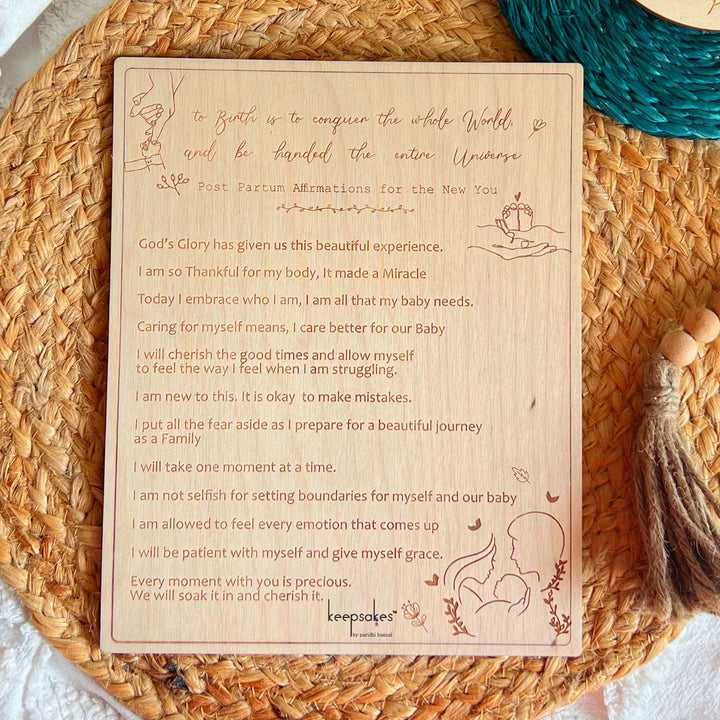 to Birth is to conquer the whole World,
and be handed the entire Universe
Post Partum Affirmations for the New You
God's Glory has given us this beautiful experience.
I am so Thankful for my body, It made a Miracle
Today I embrace who I am, I am all that my baby needs.
Caring for myself means, I care better for our Baby
I will cherish the good times and allow myself
to feel the way I feel when I am struggling.
I am new to this. It is okay to make mistakes.
I put all the fear aside as I prepare for a beautiful journey
as a Family
I will take one moment at a time.
I am not selfish for setting boundaries for myself and our baby
I am allowed to feel every emotion that comes up
I will be patient with myself and give myself grace.
Every moment with you is precious.
We will soak it in and cherish it.
keepsakes™
by paridhi bansal